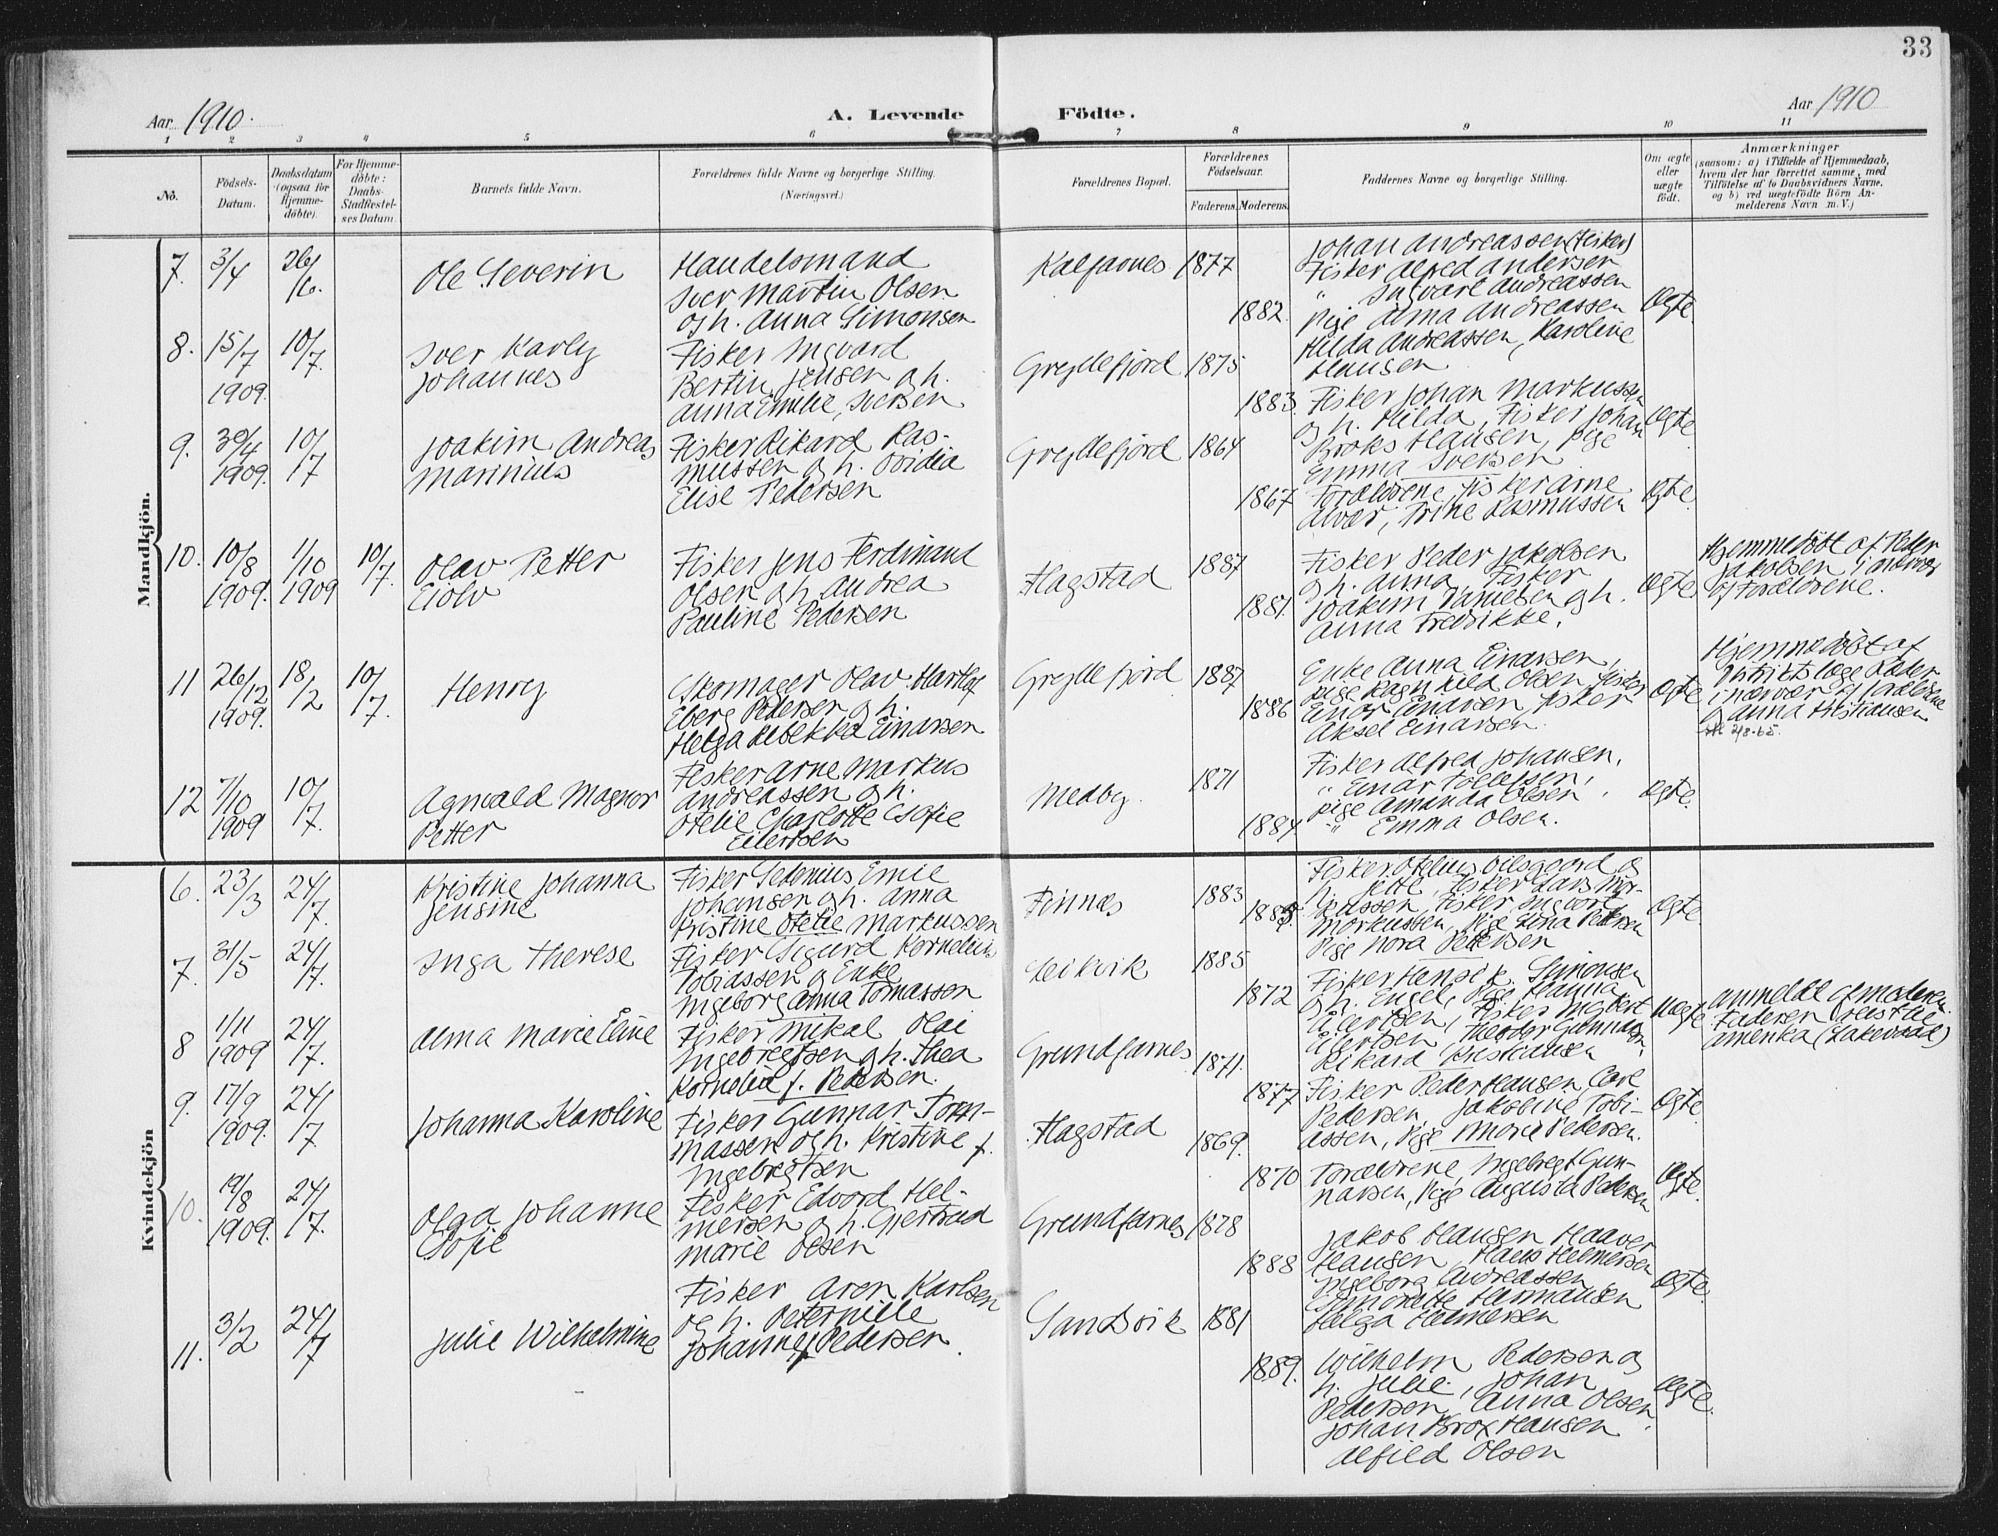 33
Aar 1910.
A. Levende Födte.
Aar 1910
1 2 3 4 5 6 7 8 9 10 11
No.
Födsels-
Datum.
Daabsdatum
(ogsaa for
Hjemme-
döbte).
For Hjemme-
döbte:
Daabs-
Stadfæstel-
ses Datum.
Barnets fulde Navn.
Forældrenes fulde Navne og borgerlige Stilling.
(Næringsvei.)
Forældrenes Bopæl.
Forældrenes
Födselsaar.
Faderens. Moderens.
Faddernes Navne og borgerlige Stilling.
Om ægte
eller
uægte
födt.
Anmærkninger
(saasom: a) i Tilfælde af Hjemmedaab,
hvem der har forrettet samme, med
Tilföielse af to Daabsvidners Navne,
og b) ved uægtefödte Börn An-
melderens Navn m. V.)
Mandkjön.
7. 3/4 26/6.
Ole Severin
Handelsmand
Iver Martin Olsen
og h. Anna Simonsen
Kalfarnes 1877
1882.
Johan Andreassen (Fisker)
Fisker Alfred Andersen
" Ingvart Andreassen
Pige Alma Andreassen
Hilda Andreassen, Karoline
Hansen
Ægte.
8. 15/7 1909. 10/7.
Iver Karly
Johannes
Fisker Ingvard
Bertin Jensen og h.
Anna Emilie, Iversen
Gryllefjord 1875
1883.
Fisker Johan Markussen
og h. Hilda, Fisker Johan
Broks Hansen, Pige
Emma Iversen
Ægte.
9. 30/4 1909. 10/7
Joakim Andreas
Marinius
Fisker Rikard Ras-
mussen og h. Ovidia
Elise Pedersen
Gryllefjord 1864
1867
Forældrene, Fisker Arne
Alvær, Trine Rasmussen
Ægte.
10. 10/8 1909. 1/10 1909 10/7.
Olav Petter
Eiolv
Fisker Jens Ferdinand
Olsen og h. Andrea
Pauline Pedersen
Hagstad 1887
1881.
Fisker Peder Jakobsen
og h. Anna, Fisker
Joakim Danielsen og h.
Anna Fredrikke.
Ægte.
Hjemmedöbt af Peder
Jakobsen i nærvær
af Forældrene.
11 26/12 1909. 18/2 10/7.
Henry
Skomager Olav Hartlof
Eberg Pedersen og h.
Helga Rebekka Einarsen
Gryllefjord 1887
1886
Enke Anna Einarsen,
Pige Ragnhild Olsen, Fisker
Einar Einarsen, Fisker
Aksel Einarsen.
Ægte
Hjemmedöbt af
Distriktslæge Læder
i nærvær af forældrene
og Anna Kristiansen
2/8-65.
12 7/10 1909 10/7.
Agnvald Magnor
Petter
Fisker Arne Markus
Andreassen og h.
Otelie Charlotte Sofie
Eilertsen
Medby. 1871
1884.
Fisker Alfred Johansen,
" Einar Tollefsen,
Pige Amanda Olsen,
" Emma Olsen.
Ægte.
Kvindekjön
6. 23/3 24/7.
Kristine Johanna
Jensine
Fisker Sedenius Emil
Johansen og h. Anna
Kristine Otelie Markussen
Finnæs 1883
1885.
Fisker Otelius Oilsgaard og
h. Jette, Fisker Lars Mar-
kussen, Fisker Ingvart
Markussen, Pige Lina Pettersen
Pige Nora Pettersen
Ægte.
7. 31/5 24/7.
Inga Therese
Fisker Sigurd Kornelius
Tobiassen og Enke
Ingeborg Anna Tomassen
Leikvik 1885
1872
Fisker Henrik Simonsen
og h. Engel, Pige Hanna
Eilertsen, Fisker Ingbert
Eilertsen, Theodor Gunnarsen,
Rikard Kristiansen
Uægte
Anmeldt af moderen.
Faderen reist til
Amerika
8 1/11 1909 24/7.
Alma Marie Eline
Fisker Mikal Olai
Ingebregtsen og h. Thea
Kornelie f. Pedersen.
Grundfarnes 1871.
1877
Fisker Peder Hansen, Carl
Pedersen, Jakobine Tobi-
assen, Pige Marie Pedersen.
Ægte.
9. 17/9 1909. 24/7.
Johanna Karoline
Fisker Gunnar Tom-
massen og h. Kristine f.
Ingebregtsen
Hagstad 1869.
1870
Forældrene, Ingebregt Gun-
narsen, Pige Augusta Pedersen
Ægte.
10. 19/8 1909. 24/7.
Olga Johanne
Sofie
Fisker Edvard Hel-
mersen og h. Gjertrud
Marie Olsen
Grundfarnes 1878
1888
Jakob Hansen Haaver
Hansen, Hans Helmersen
Ingeborg Andreassen
Simonette Hermansen
Helga Helmersen
Ægte.
11. 3/2 24/7
Julie Wilhelmine
Fisker Aron Karlsen
og h. Peternille
Johanne f. Pedersen.
Sandvik 1881
1889.
Wilhelm Pedersen og
h. Julie, Johan
Pedersen, Anna Olsen,
Johan Brox Hansen
Alfild Olsen
Ægte.